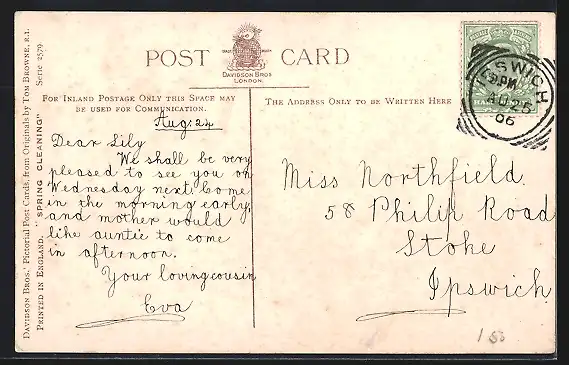 POST CARD
TRADE MARK
DAVIDSON BROS.
LONDON.
FOR INLAND POSTAGE ONLY THIS SPACE MAY
BE USED FOR COMMUNICATION.
THE ADDRESS ONLY TO BE WRITTEN HERE
Aug: 24
Dear Lily
We shall be very
pleased to see you on
Wednesday next. Come
in the morning early,
and mother would
like auntie to come
in afternoon.
Your loving cousin
Eva
Miss Northfield.
58 Philip Road
Stoke
Ipswich.
IPSWICH
PM
AU 25
06
DAVIDSON BROS.' PICTORIAL POST CARDS, FROM ORIGINALS BY TOM BROWNE, R.I.
PRINTED IN ENGLAND. "SPRING CLEANING" SERIE 2579